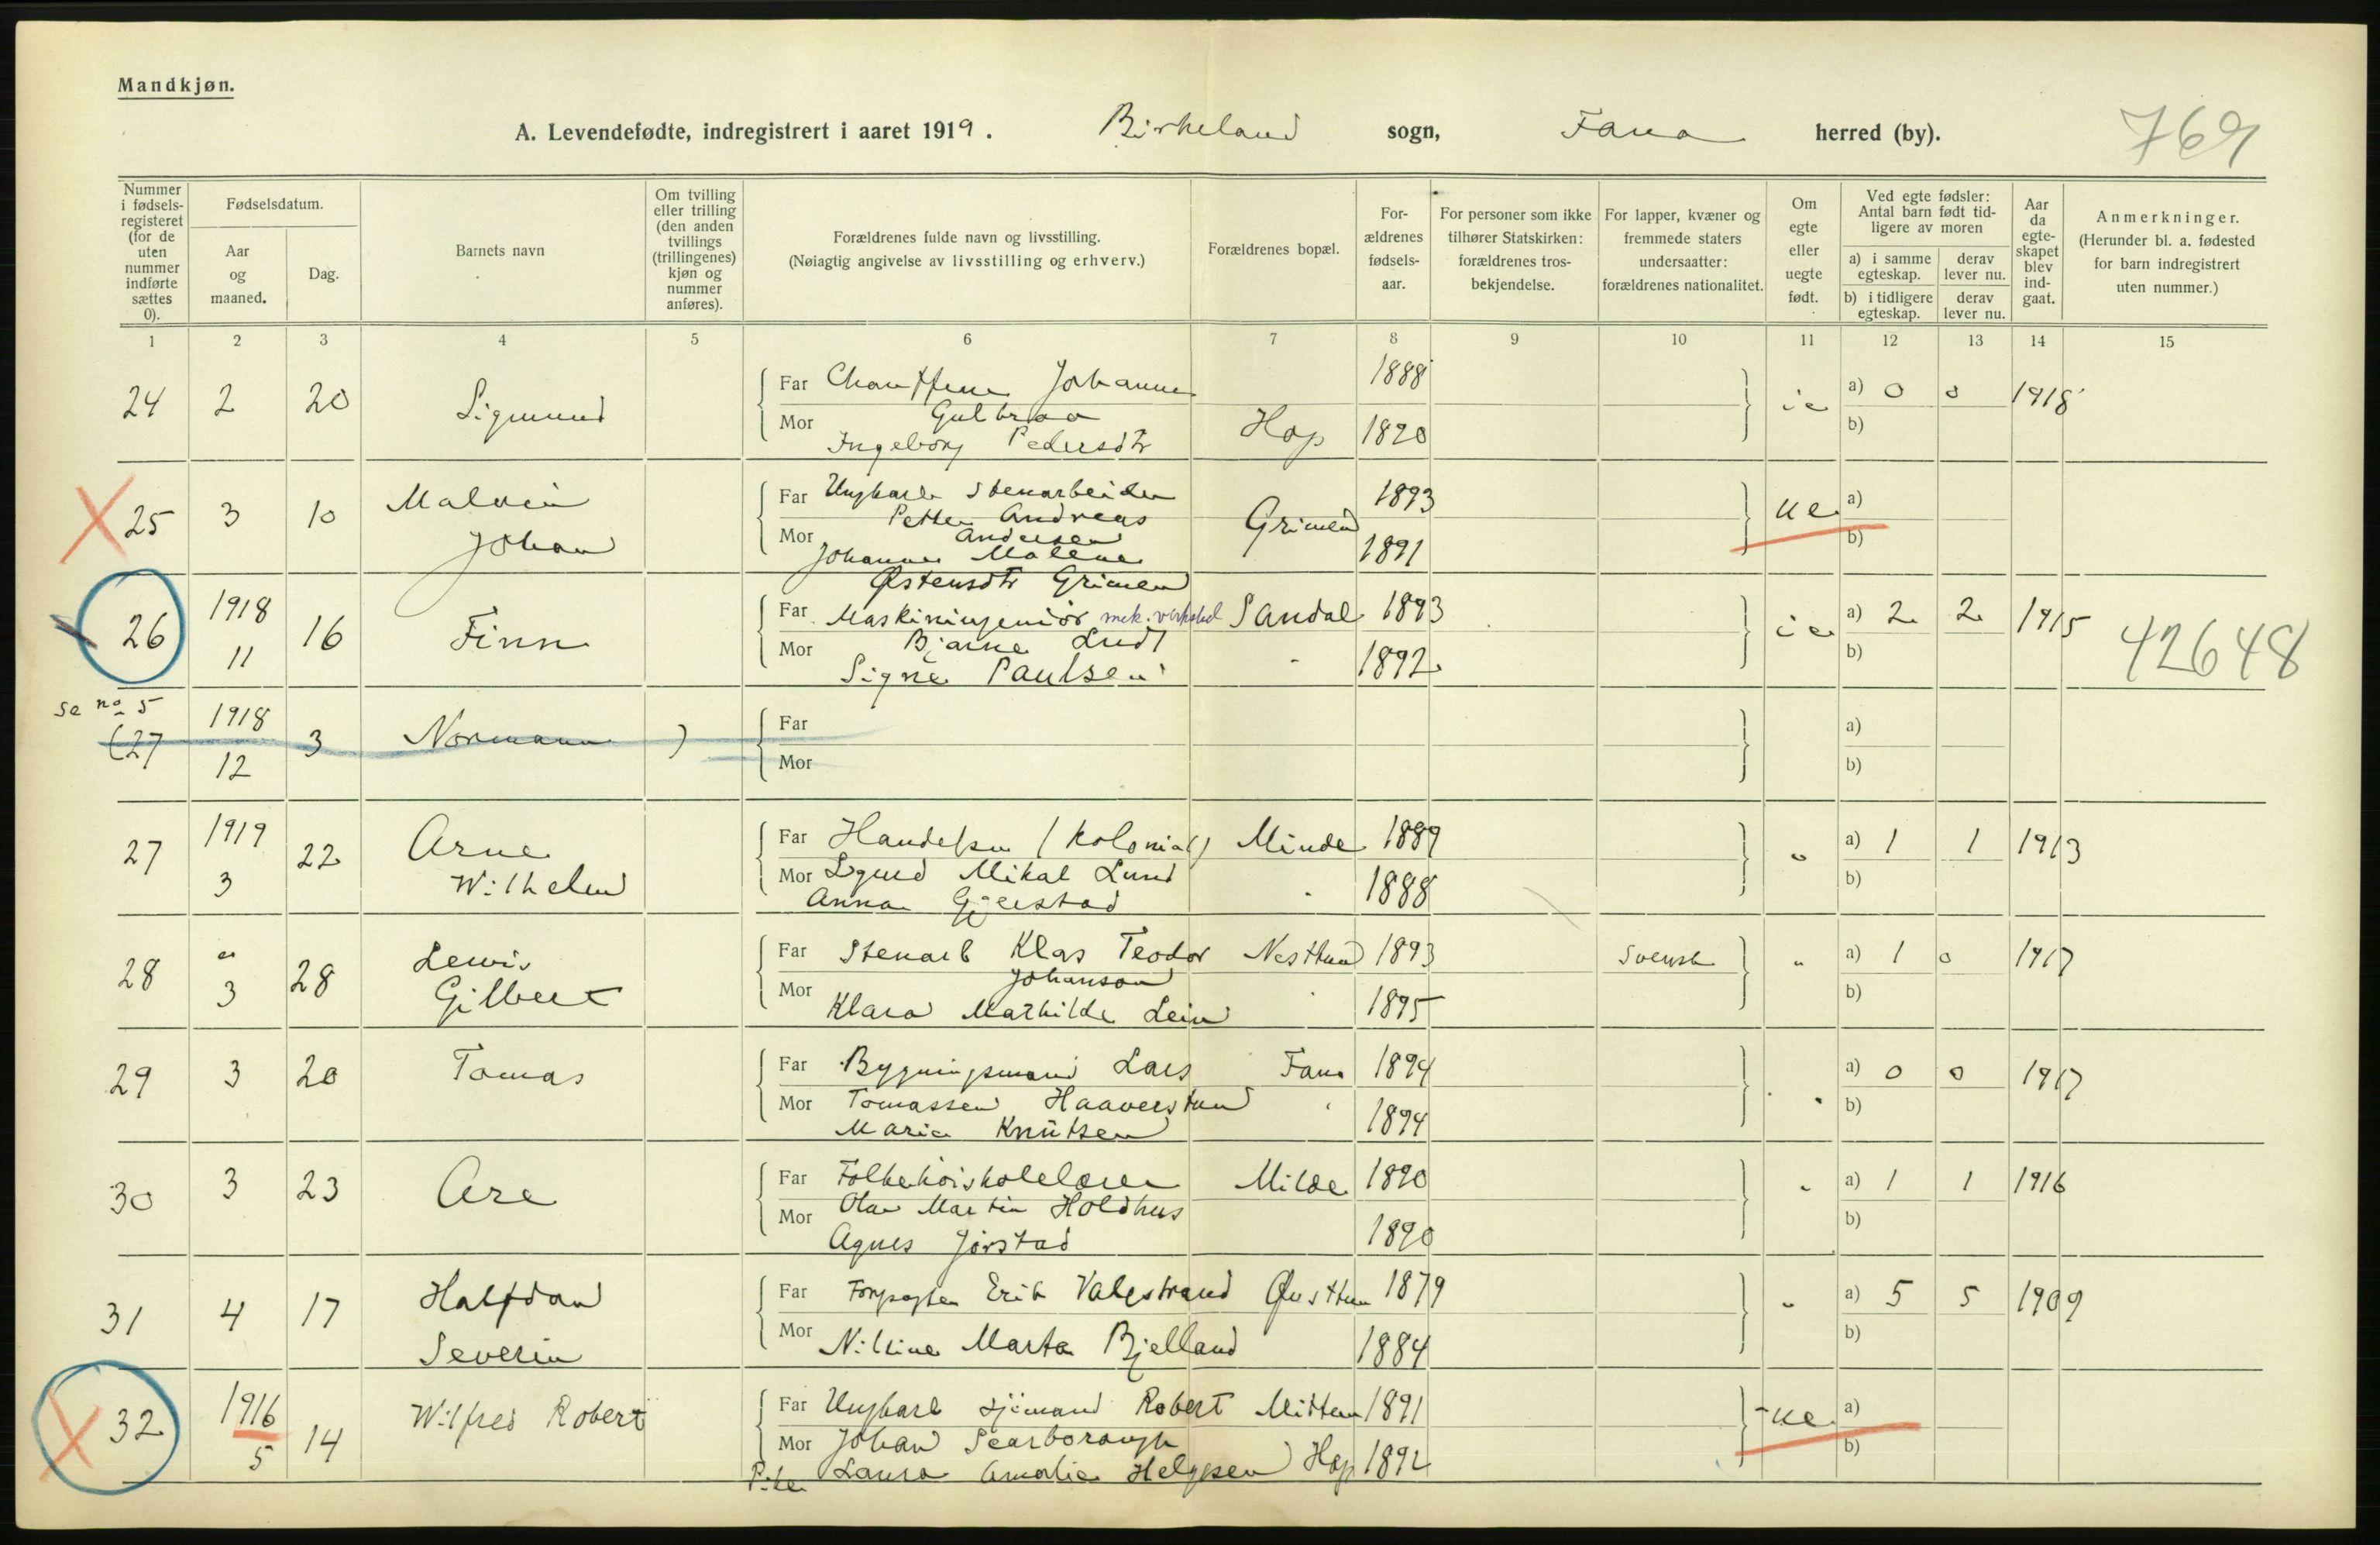 Mandkjøn.
A. Levendefødte, indregistrert i aaret 1919. Birkeland sogn, Fana herred (by). 769
Nummer i fødselsregisteret (for de uten nummer indførte sættes 0).
Fødselsdatum.
Aar og maaned.
Dag.
Barnets navn
Om tvilling eller trilling (den anden tvillings (trillingenes) kjøn og nummer anføres).
Forældrenes fulde navn og livsstilling.
(Nøiagtig angivelse av livsstilling og erhverv.)
Forældrenes bopæl.
For-ældrenes fødsels-aar.
For personer som ikke tilhører Statskirken: forældrenes tros-bekjendelse.
For lapper, kvæner og fremmede staters undersaatter: forældrenes nationalitet.
Om egte eller uegte født.
Ved egte fødsler: Antal barn født tid-ligere av moren
a) i samme egteskap. derav lever nu.
b) i tidligere egteskap. derav lever nu.
Aar da egte-skapet blev ind-gaat.
Anmerkninger.
(Herunder bl. a. fødested for barn indregistrert uten nummer.)
1 2 3 4 5 6 7 8 9 10 11 12 13 14 15
24 2 20 Sigmund Far Chauffeur Johannes 1888 ie a) 0 0 1918
Mor Gulbraa Hop 1890 b)
Ingeborg Pedersdtr
25 3 10 Malvin Far Ungkarl Stenarbeider 1893 ue a)
Johan Petter Andreas Grimen
Mor Andersen 1891 b)
Johanne Malene
Østensdtr Grimen
26 1918 11 16 Finn Far Maskiningeniör mek. verksted Sandal 1893 ie a) 2 2 1915 42648
Mor Bjarne Ludt 1892 b)
Signe Paulsen
se no 5
(27 1918 12 3 Normann ) Far a)
Mor b)
27 1919 3 22 Arne Far (Kolonial) Minde 1889 " a) 1 1 1913
Wilhelm Mor Mikal Lund " 1888 b)
Anna Gjerstad
28 " 3 28 Lewis Far Stenarb Klas Teodor Nesttun 1893 Svensk " a) 1 0 1917
Gilbert Johanson
Mor Klara Mathilde Lein " 1895 b)
29 3 20 Tomas Far Bygningsmand Lars Fana 1894 " a) 0 0 1917
Mor Tomassen Haaverstun " 1894 b)
Marie Knutsen
30 3 23 Are Far Folkehöiskolelærer Milde 1890 " a) 1 1 1916
Mor Olav Martin Holdhus 1890 b)
Agnes Jörstad
31 4 17 Halfdan Far Forpagter Erik Valestrand 1879 " a) 5 5 1909
Severin Mor Nikline Marta Bjelland 1884 b)
32 1916 5 14 Wilfred Robert Far Ungkarl sjömand Robert 1891 ue a)
Mor Johan Scarborough b)
Pike Laura Amalie Helgesen Hop 1892